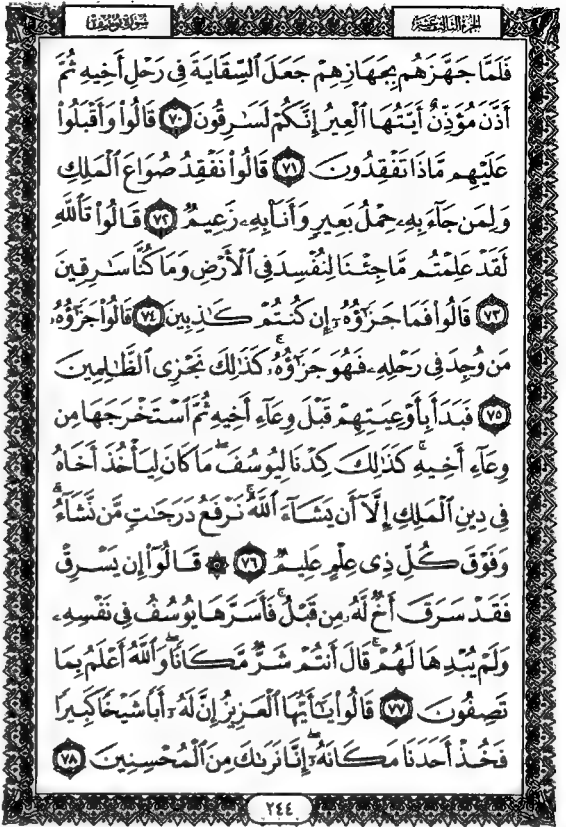 الجزء الثالث عشر
سورة يوسف
فَلَمَّا جَهَّزَهُم بِجَهَازِهِمْ جَعَلَ ٱلسِّقَايَةَ فِى رَحْلِ أَخِيهِ ثُمَّ
أَذَّنَ مُؤَذِّنٌ أَيَّتُهَا ٱلْعِيرُ إِنَّكُمْ لَسَـٰرِقُونَ ٧٠ قَالُوا۟ وَأَقْبَلُوا۟
عَلَيْهِم مَّاذَا تَفْقِدُونَ ٧١ قَالُوا۟ نَفْقِدُ صُوَاعَ ٱلْمَلِكِ
وَلِمَن جَآءَ بِهِۦ حِمْلُ بَعِيرٍ وَأَنَا۠ بِهِۦ زَعِيمٌ ٧٢ قَالُوا۟ تَٱللَّهِ
لَقَدْ عَلِمْتُم مَّا جِئْنَا لِنُفْسِدَ فِى ٱلْأَرْضِ وَمَا كُنَّا سَـٰرِقِينَ
٧٣ قَالُوا۟ فَمَا جَزَٰٓؤُهُۥٓ إِن كُنتُمْ كَـٰذِبِينَ ٧٤ قَالُوا۟ جَزَٰٓؤُهُۥ
مَن وُجِدَ فِى رَحْلِهِۦ فَهُوَ جَزَٰٓؤُهُۥ ۚ كَذَٰلِكَ نَجْزِى ٱلظَّـٰلِمِينَ
٧٥ فَبَدَأَ بِأَوْعِيَتِهِمْ قَبْلَ وِعَآءِ أَخِيهِ ثُمَّ ٱسْتَخْرَجَهَا مِن
وِعَآءِ أَخِيهِ ۚ كَذَٰلِكَ كِدْنَا لِيُوسُفَ ۖ مَا كَانَ لِيَأْخُذَ أَخَاهُ
فِى دِينِ ٱلْمَلِكِ إِلَّآ أَن يَشَآءَ ٱللَّهُ ۚ نَرْفَعُ دَرَجَـٰتٍ مَّن نَّشَآءُ ۗ
وَفَوْقَ كُلِّ ذِى عِلْمٍ عَلِيمٌ ٧٦ ۞ قَالُوٓا۟ إِن يَسْرِقْ
فَقَدْ سَرَقَ أَخٌ لَّهُۥ مِن قَبْلُ ۚ فَأَسَرَّهَا يُوسُفُ فِى نَفْسِهِۦ
وَلَمْ يُبْدِهَا لَهُمْ ۚ قَالَ أَنتُمْ شَرٌّ مَّكَانًا ۖ وَٱللَّهُ أَعْلَمُ بِمَا
تَصِفُونَ ٧٧ قَالُوا۟ يَـٰٓأَيُّهَا ٱلْعَزِيزُ إِنَّ لَهُۥٓ أَبًا شَيْخًا كَبِيرًا
فَخُذْ أَحَدَنَا مَكَانَهُۥٓ ۖ إِنَّا نَرَىٰكَ مِنَ ٱلْمُحْسِنِينَ ٧٨
٢٤٤